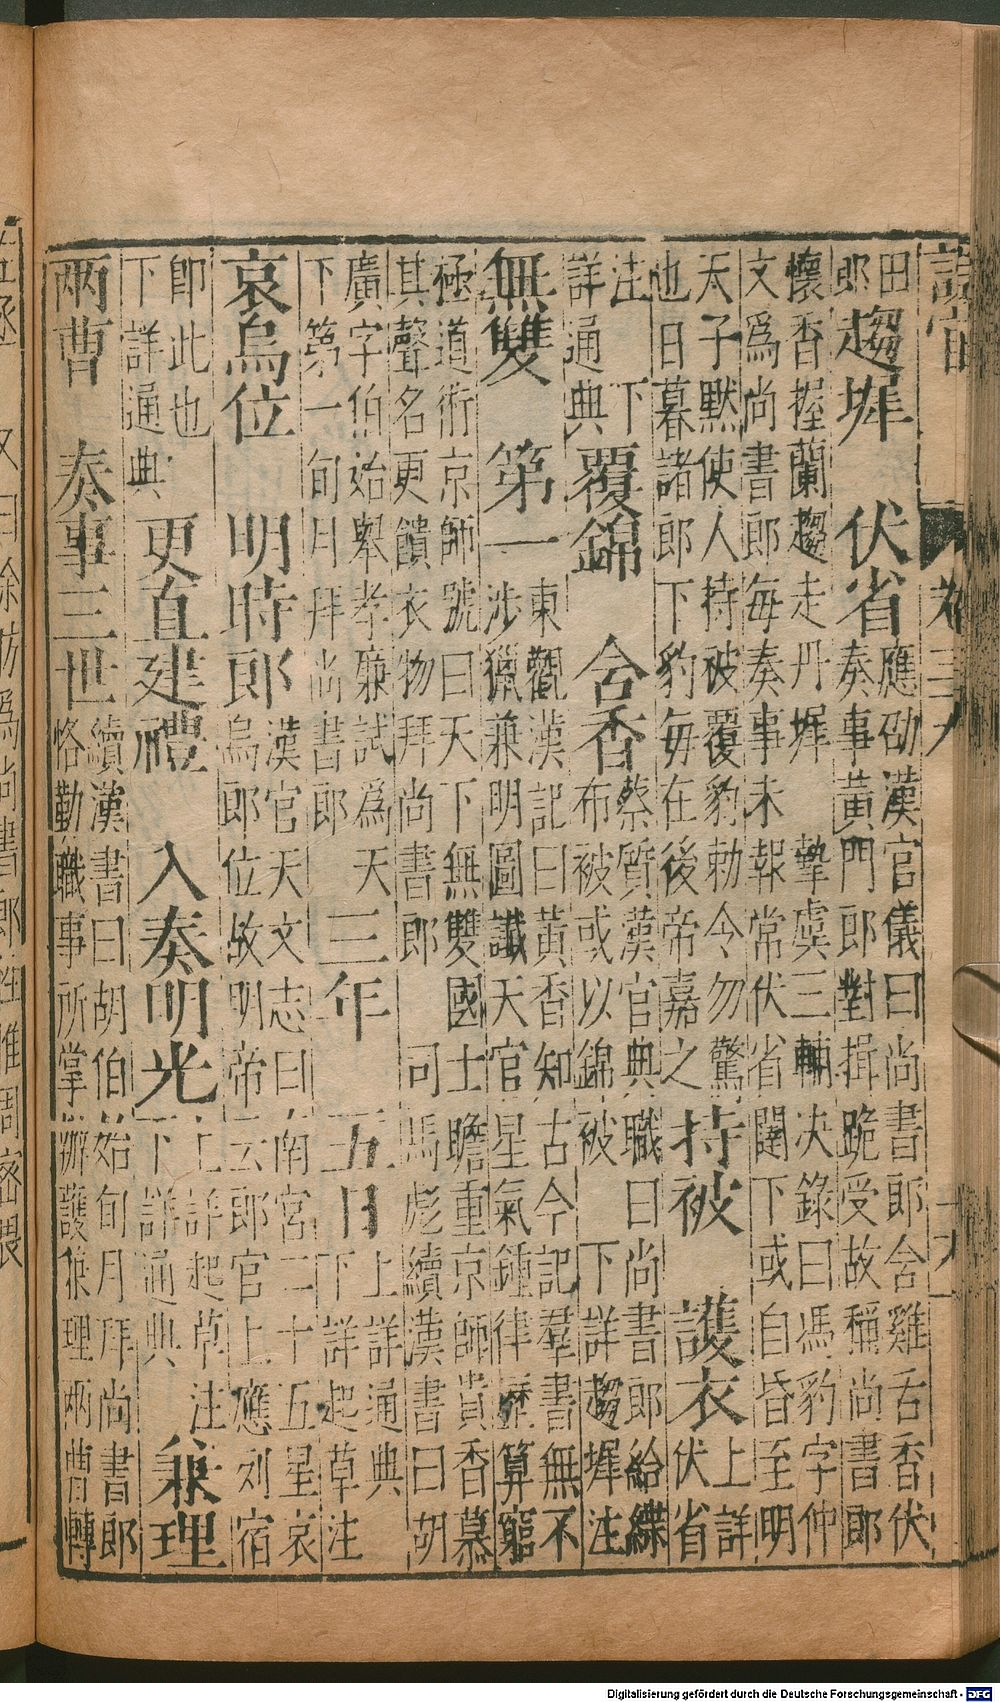 設官 卷三九
田郎趨墀 伏省應劭漢官儀曰尚書郎含雞舌香伏
奏事黃門郎對揖跪受故稱尚書郎
懷香握蘭趨走丹墀 摯虞三輔决錄曰馮豹字仲
文爲尚書郎每奏事未報常伏省閤下或自昏至明
天子默使人持被覆豹勅令勿驚
也日暮諸郎下豹每在後帝嘉之 持被 護衣上詳伏省
注 下詳通典 覆錦 含香蔡質漢官典職曰尚書郎給緤
布被或以錦被 下詳趨墀注
無雙 第一東觀漢記曰黃香知古今記羣書無不
涉獵兼明圖讖天官星氣鍾律歷算窮
極道術京師號曰天下無雙國士瞻重京師貴香慕
其聲名更饋衣物拜尚書郎 司馬彪續漢書曰胡
廣字伯始舉孝廉試爲天
下第一旬月拜尚書郎 三年 五日上詳通典下詳起草注
哀烏位 明時郎漢官天文志曰南宮二十五星哀
烏郎位故明帝云郎官上應列宿
即此也下詳通典 更直建禮 入奏明光上詳起草注下詳通典 兼理
兩曹 奏事三世續漢書曰胡伯始旬月拜尚書郎
恪勤職事所掌辦護兼理兩曹轉
又曰徐防爲尚書郎性惟周密畏
Digitalisierung gefördert durch die Deutsche Forschungsgemeinschaft - DFG